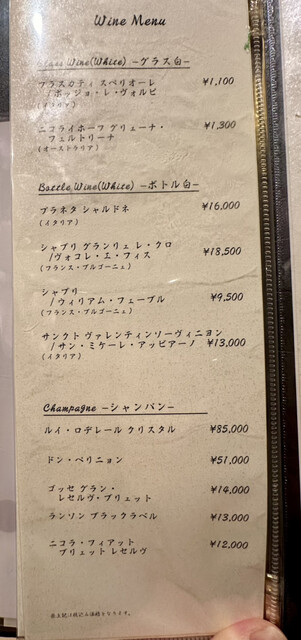 Wine Menu
Glass Wine(White) -グラス白-
フラスカティ スペリオーレ
/ポッジョ・レ・ヴォルピ ¥1,100
(イタリア)
ニコライホーフ グリューナー・
フェルトリーナ ¥1,300
(オーストラリア)
Bottle Wine(White) -ボトル白-
プラネタ シャルドネ ¥16,000
(イタリア)
シャブリ グランリュ レ・クロ
/ヴォコレ・エ・フィス ¥18,500
(フランス・ブルゴーニュ)
シャブリ
/ウィリアム・フェーブル ¥9,500
(フランス・ブルゴーニュ)
サンクト ヴァレンティンソーヴィニヨン
/サン・ミケーレ・アッピアーノ ¥13,000
(イタリア)
Champagne -シャンパン-
ルイ・ロデレール クリスタル ¥85,000
ドン・ペリニョン ¥51,000
ゴッセ グラン・
レセルヴ・ブリュット ¥14,000
ランソン ブラックラベル ¥13,000
ニコラ・フィアット
ブリュット レセルヴ ¥12,000